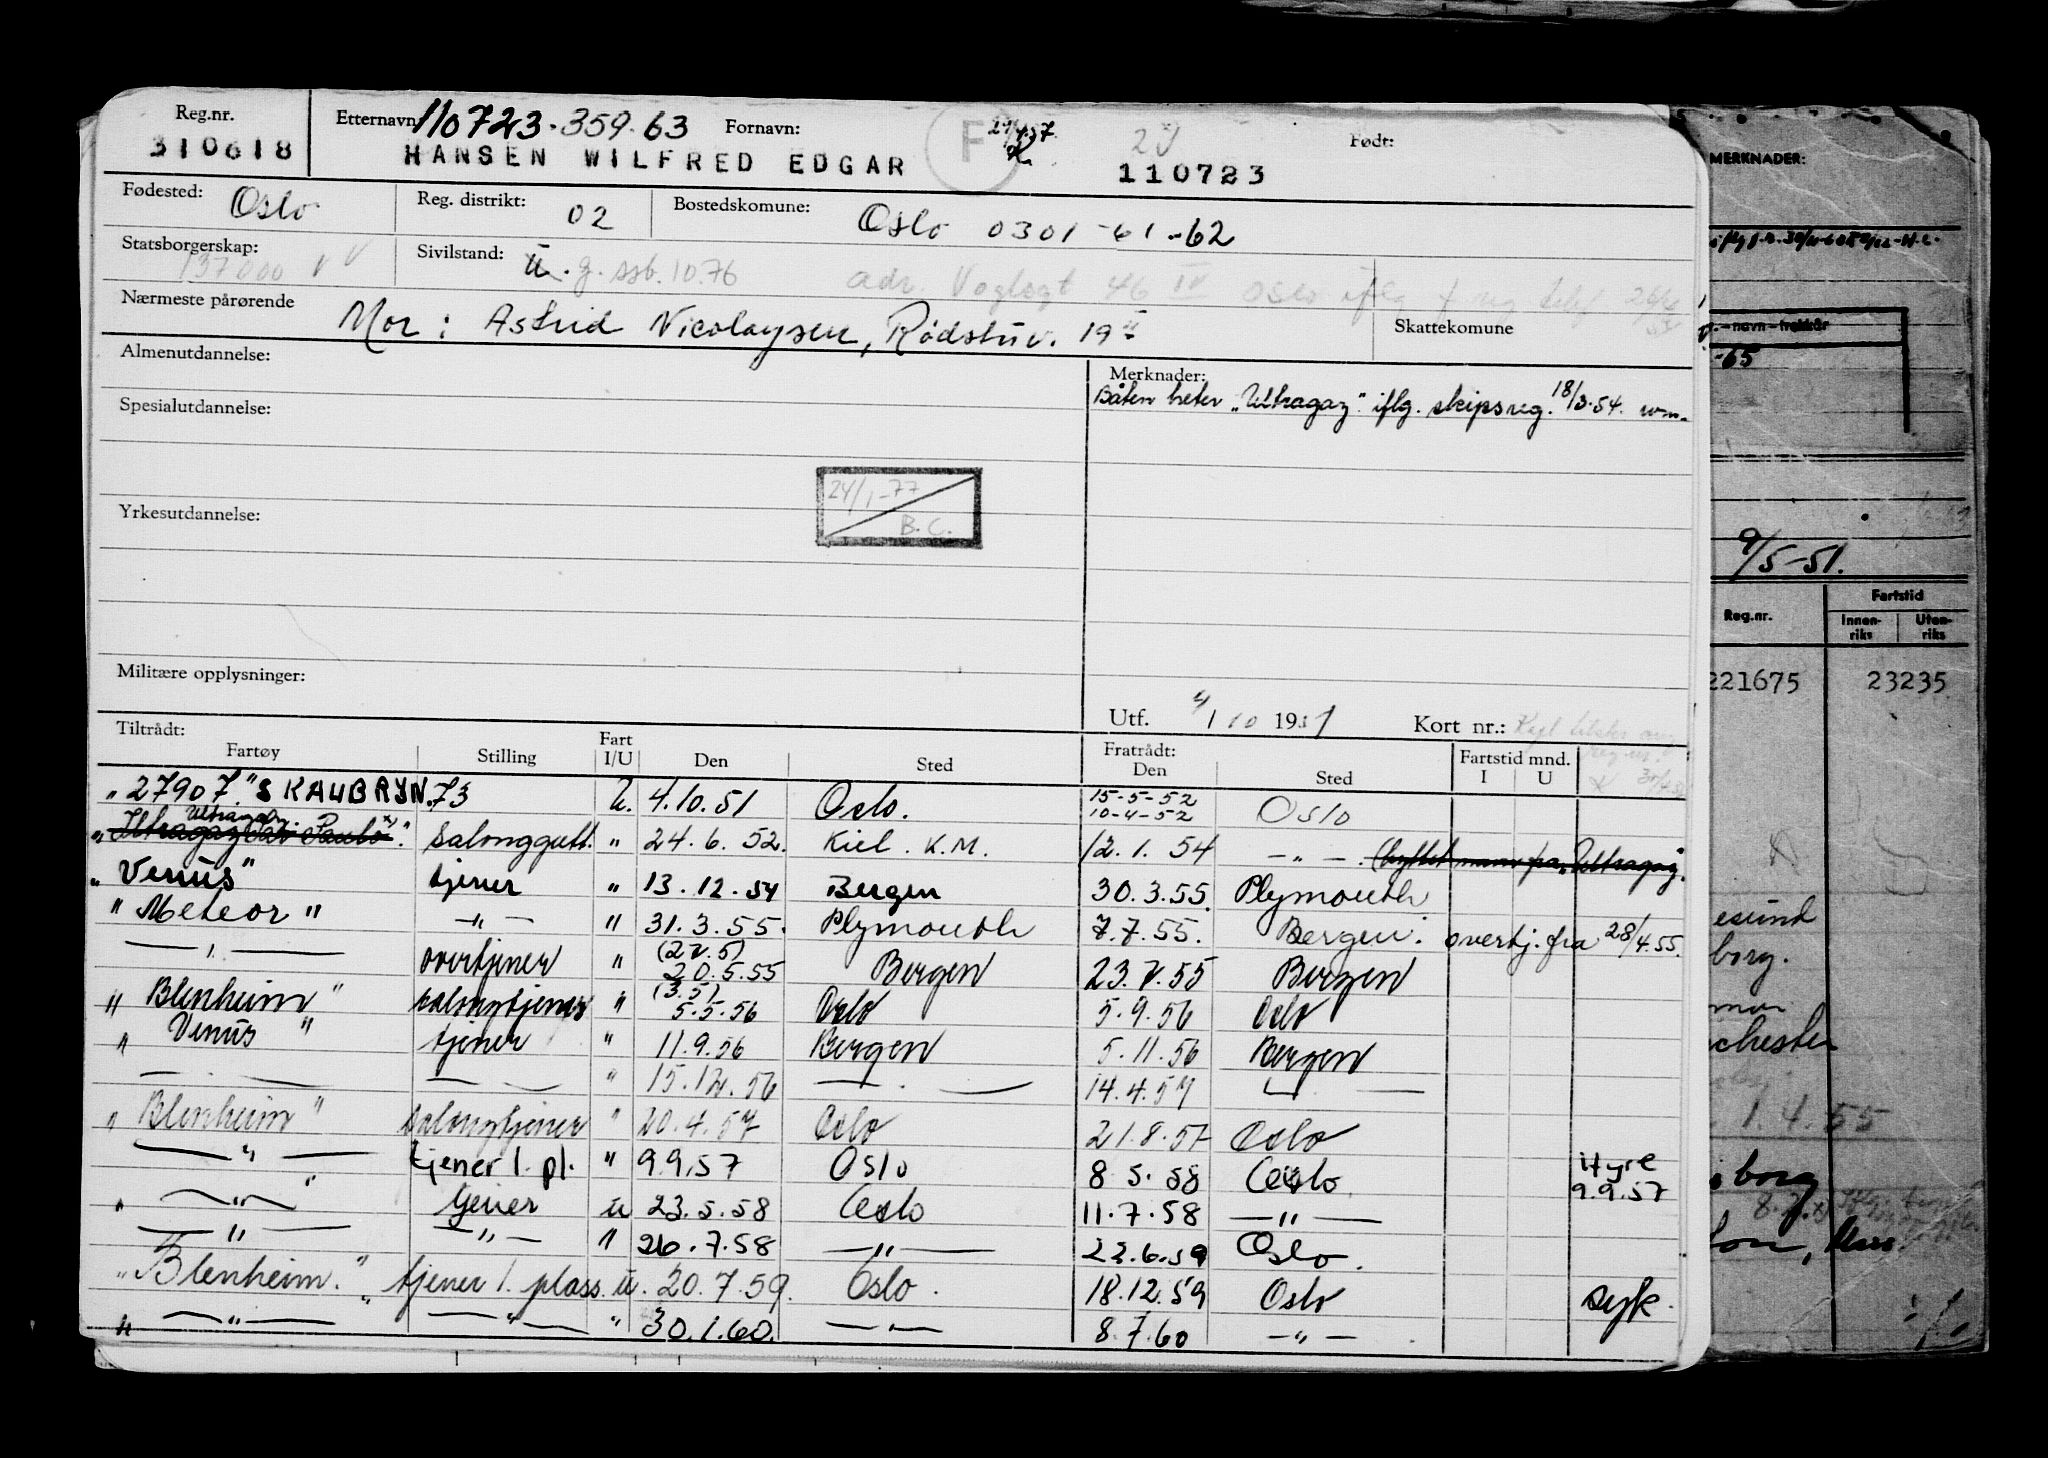 Reg.nr. Etternavn 110723.359.63 Fornavn: F Født:
310618 HANSEN WILFRED EDGAR 110723
Fødested: Oslo Reg. distrikt: 02 Bostedskomune: Oslo 0301-61-62
Statsborgerskap: 137000 Sivilstand: u. g. ssb. 10.76 adr. Vogtsgt 46 IV Oslo iflg
Nærmeste pårørende Mor: Astrid Nicolaysen, Rødstuv. 19 Skattekomune
Almenutdannelse: Merknader:
Båten heter „Ultragaz". iflg. skipsreg. 18/3.54.
Spesialutdannelse:
24/1-77
B.C.
Yrkesutdannelse:
Militære opplysninger:
Utf. 4/10 1951 Kort nr.:
Tiltrådt: Fratrådt:
Fartøy Stilling Fart I/U Den Sted Den Sted Fartstid mnd. I U
"27907." SKAUBRYN. 73 U. 4.10.51 Oslo. 15-5-52 10-4-52 Oslo
Ultragaz
" Ultragaz Sao Paulo x)". salonggutt. " 24.6.52. Kiel. K.M. 12.1.54 — " —. (byttet navn fra „Ultragaz.
„Venus" tjener " 13.12.54 Bergen 30.3.55. Plymouth
" Meteor " — " — " 31.3.55. Plymouth 7.7.55. Bergen. overtj. fra 28/4.55.
— " — overtjener " (22.5) 20.5.55 Bergen 23.7.55 Bergen
" Blenheim " salongtjener " (3.5) 5.5.56 Oslo 5.9.56 Oslo
" Venus " tjener " 11.9.56 Bergen 5.11.56 Bergen
— " — — " — " 15.12.56 — " — 14.4.57 — " —
" Blenheim " salongtjener " 20.4.57 Oslo 21.8.57 Oslo
— " — " tjener 1. pl. " 9.9.57 Oslo 8.5.58 Oslo. 9.9.57
" — " — tjener u 23.5.58 Oslo 11.7.58 — " —
— " — — " — " 26.7.58 — " — 22.6.59 Oslo.
" Blenheim. " tjener 1. plass. u. 20.7.59. Oslo. 18.12.59 Oslo syk.
" — " — — " — " 30.1.60. — " — 8.7.60 — " —
MERKNADER:
-navn-trekkår
-65
9/5-51.
Reg.nr. Fartstid
Innen-riks Uten-riks
221675 23235
esund
borg.
chester
1.4.55
borg